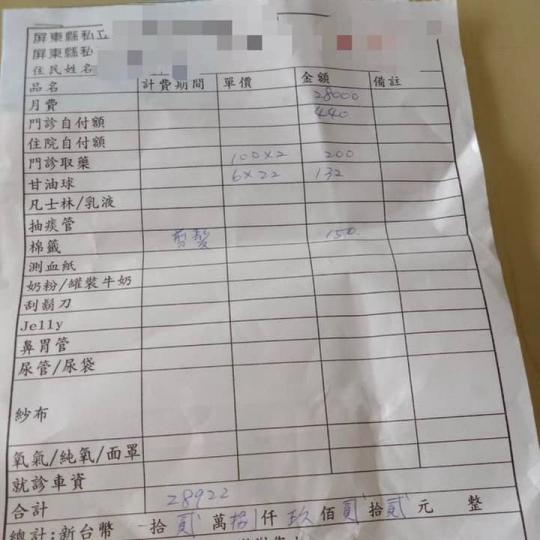 屏東縣私立
屏東縣私
住民姓名
品名 計費期間 單價 金額 備註
月費 28000
門診自付額 440
住院自付額
門診取藥 100×2 200
甘油球 6×22 132
凡士林/乳液
抽痰管
棉籤 剪髮 150
測血紙
奶粉/罐裝牛奶
刮鬍刀
Jelly
鼻胃管
尿管/尿袋
紗布
氧氣/純氧/面罩
就診車資
合計 28922
總計:新台幣 拾貳萬捌仟玖佰貳拾貳元 整